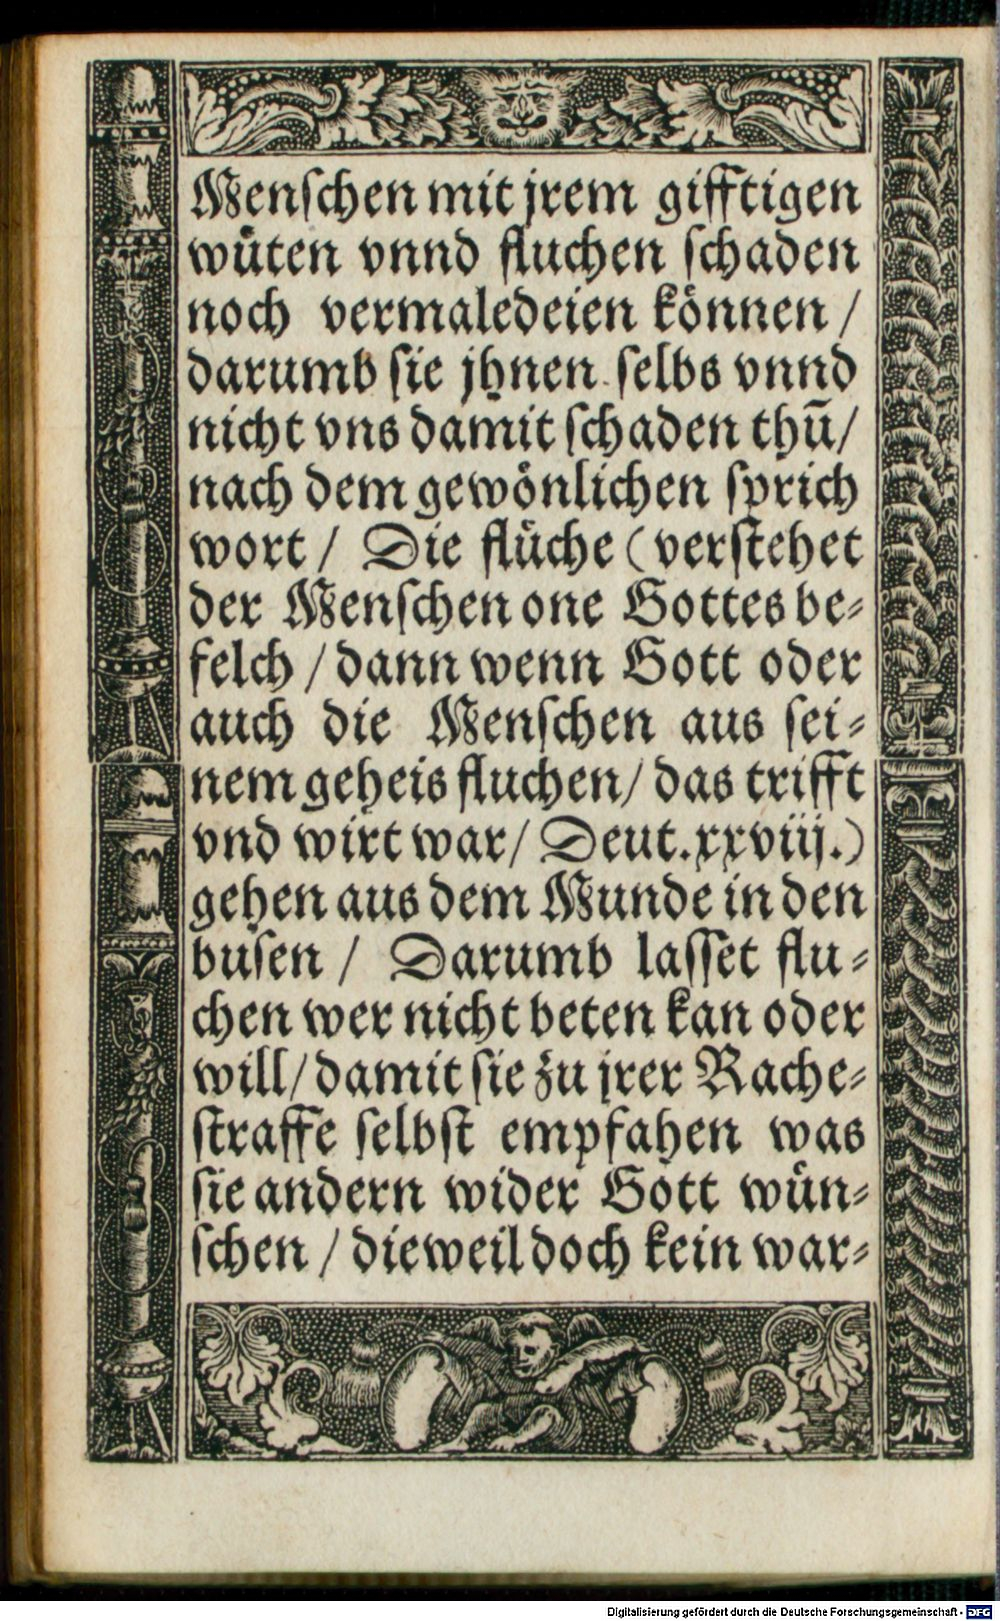 Menschen mit jrem gifftigen
wüten vnnd fluchen schaden
noch vermaledeien können /
darumb sie jhnen selbs vnnd
nicht vns damit schaden thū/
nach dem gewönlichen sprich
wort / Die flüche (verstehet
der Menschen one Gottes be-
felch / dann wenn Gott oder
auch die Menschen aus sei-
nem geheis fluchen/ das trifft
vnd wirt war/ Deut.xxviij.)
gehen aus dem Munde in den
busen / Darumb lasset flu-
chen wer nicht beten kan oder
will/ damit sie zu jrer Rache-
straffe selbst empfahen was
sie andern wider Gott wün-
schen / dieweil doch kein war-
Digitalisierung gefördert durch die Deutsche Forschungsgemeinschaft - DFG